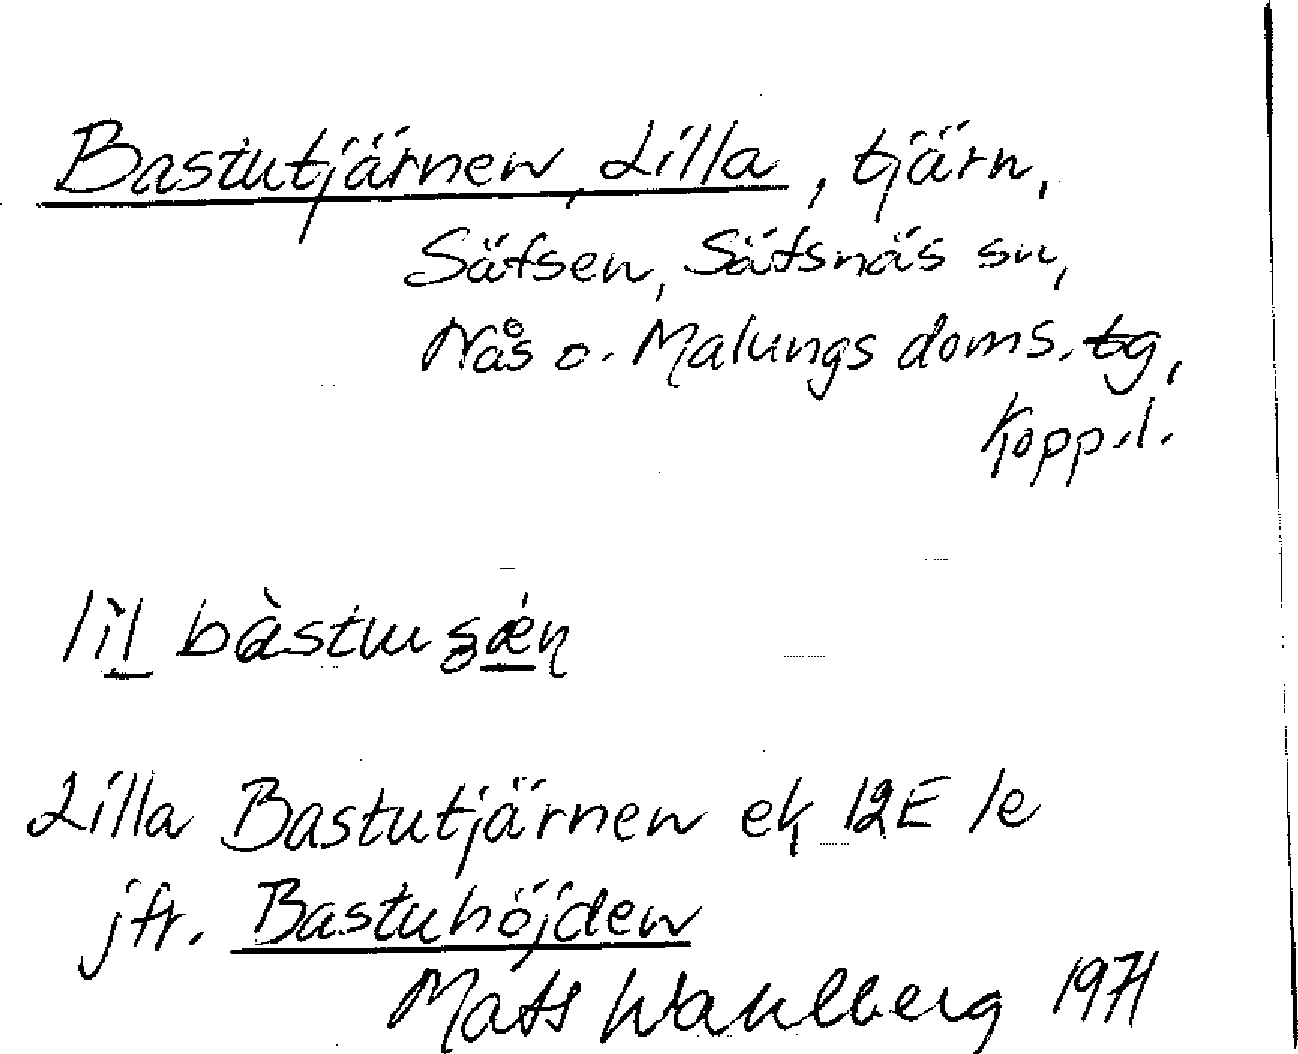 Bastutjärnen, Lilla, tjärn,
Säfsen, Säfsnäs sn,
Nås o. Malungs doms. tg,
Kopp.l.
lìl bàstuʂǽɳ
Lilla Bastutjärnen ek 12E 1e
jfr. Bastuhöjden
Mats Wahlberg 1971